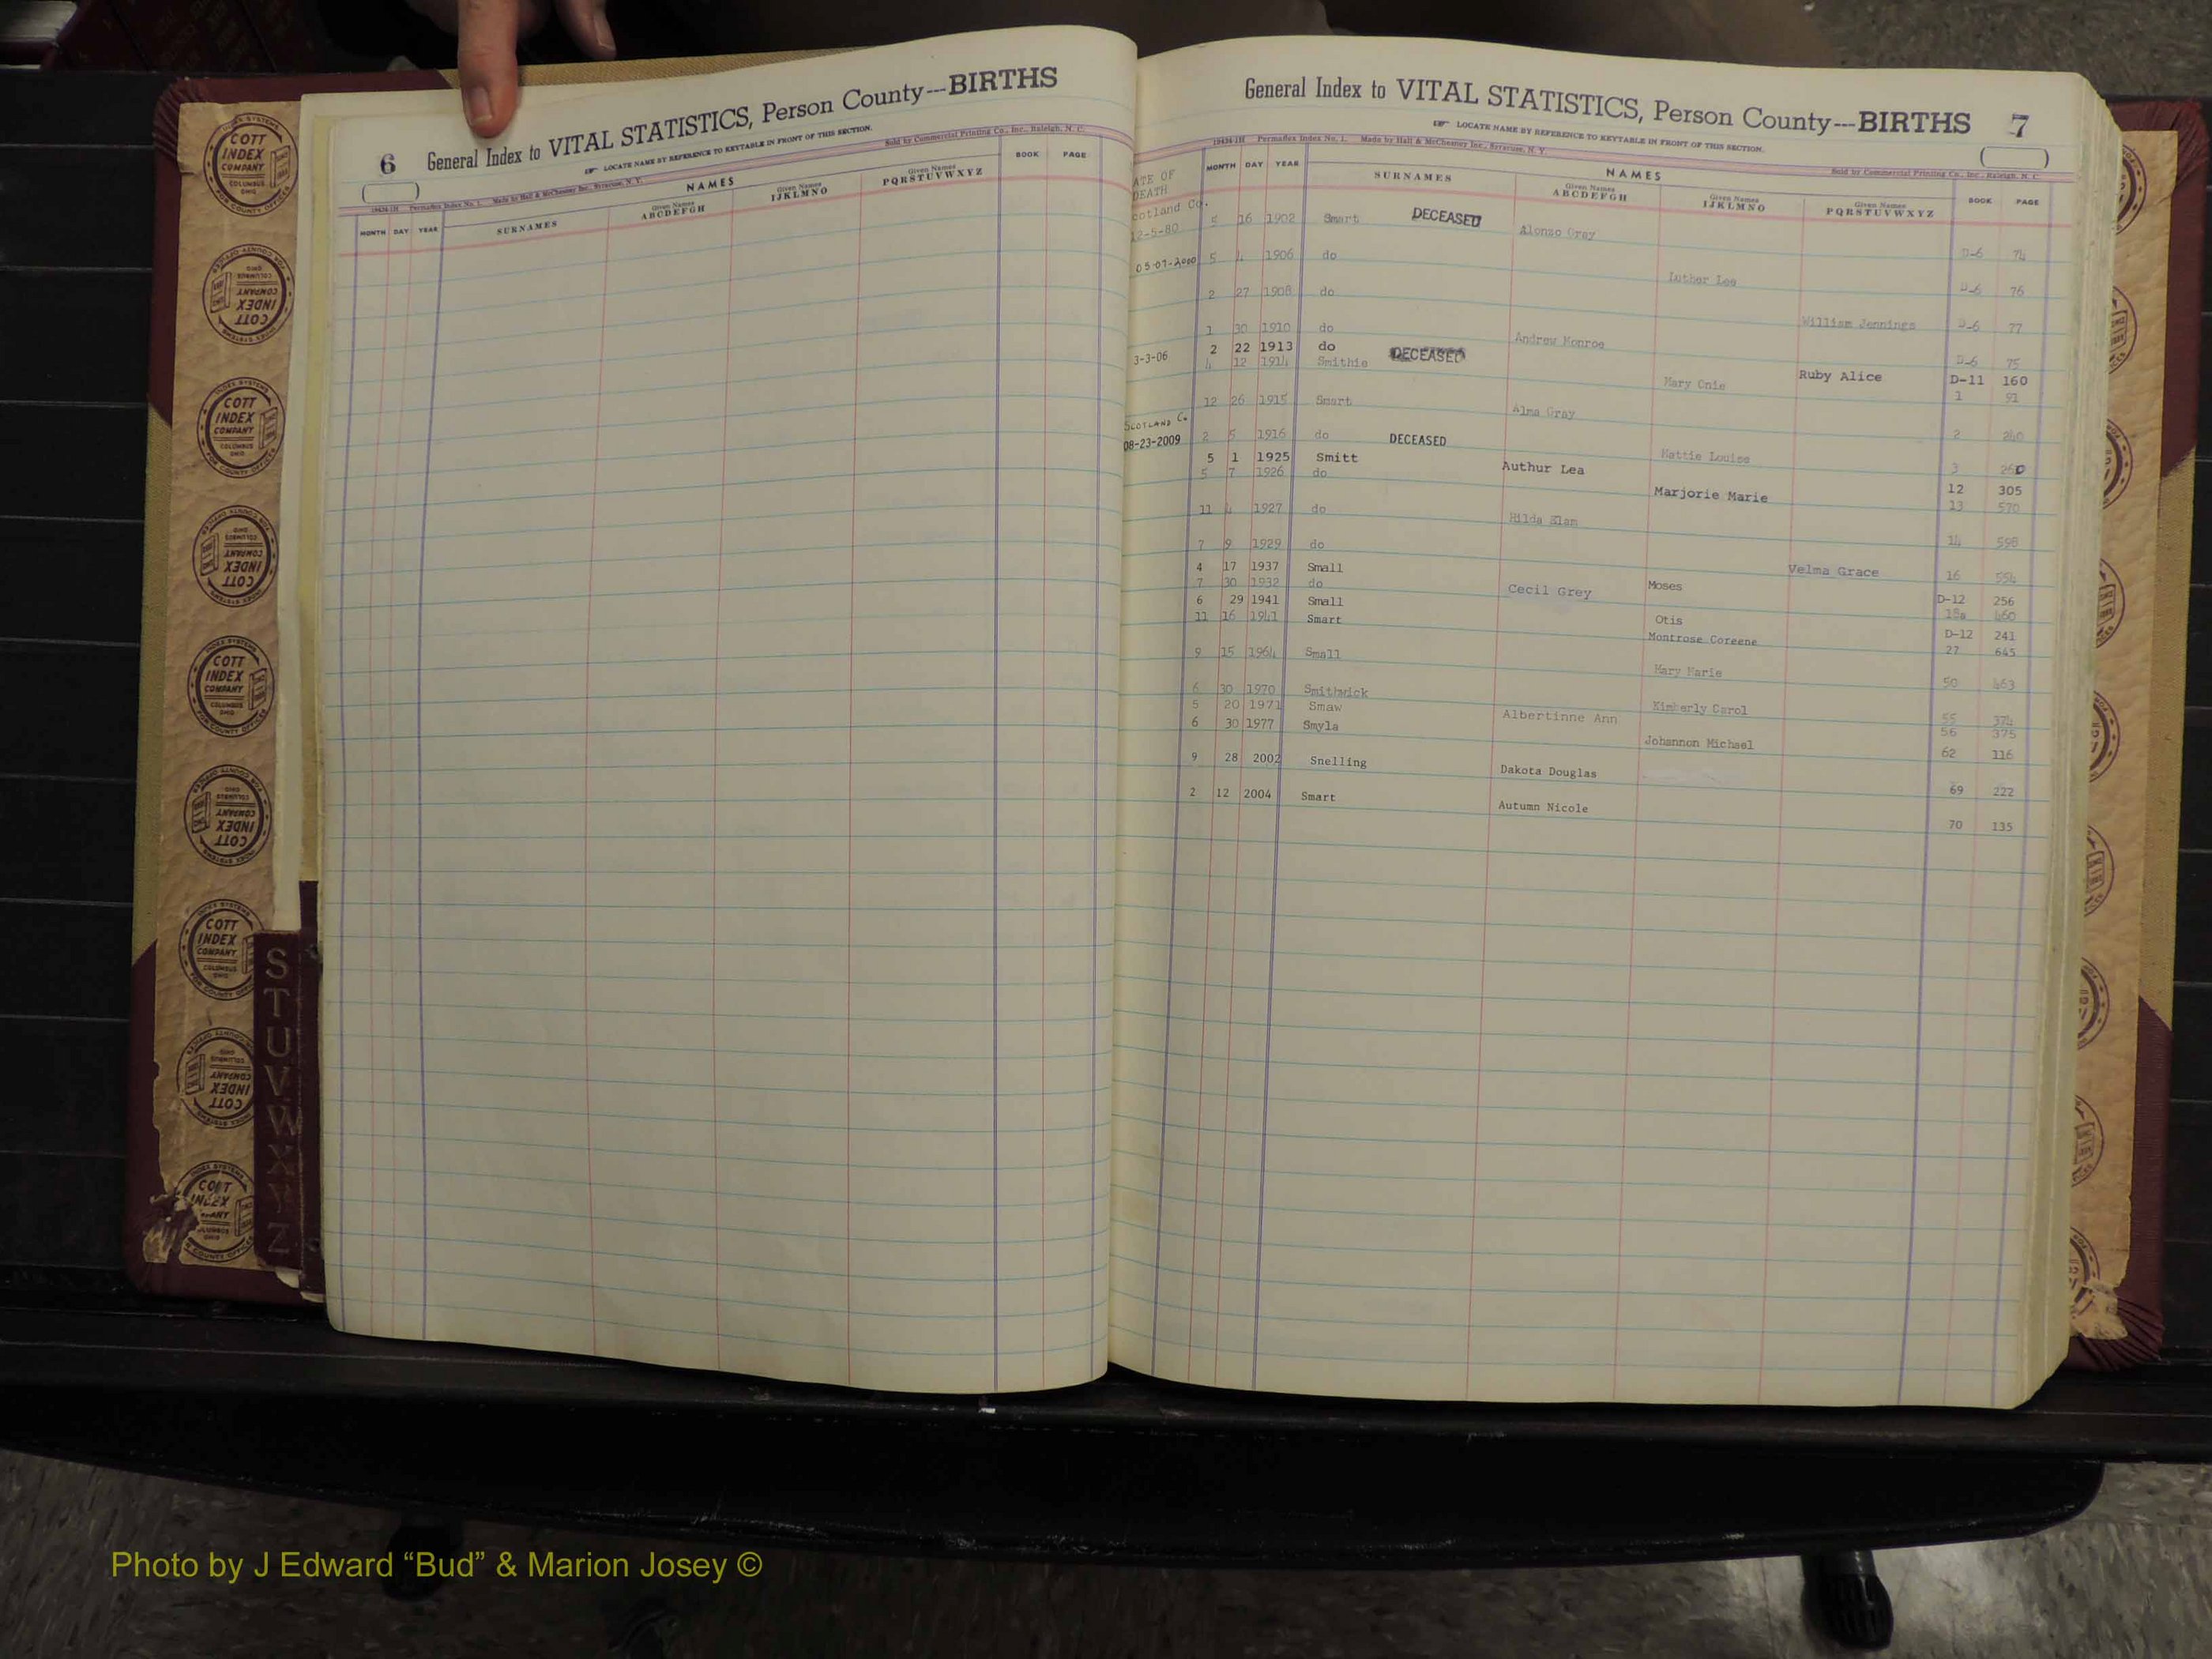 6 General Index to VITAL STATISTICS, Person County---BIRTHS
LOCATE NAME BY REFERENCE TO KEYTABLE IN FRONT OF THIS SECTION.
Made by Hall & McChesney Inc., Syracuse, N. Y. Sold by Commercial Printing Co., Inc., Raleigh, N. C.
NAMES
MONTH DAY YEAR SURNAMES Given Names ABCDEFGH Given Names IJKLMNO Given Names PQRSTUVWXYZ BOOK PAGE
General Index to VITAL STATISTICS, Person County---BIRTHS 7
LOCATE NAME BY REFERENCE TO KEYTABLE IN FRONT OF THIS SECTION.
Permaflex Index No. 1. Made by Hall & McChesney Inc., Syracuse, N. Y. Sold by Commercial Printing Co., Inc., Raleigh, N. C.
NAMES
ATE OF DEATH MONTH DAY YEAR SURNAMES Given Names ABCDEFGH Given Names IJKLMNO Given Names PQRSTUVWXYZ BOOK PAGE
cotland Co.
12-5-80 5 16 1902 Smart DECEASED Alonzo Gray D-6 74
05-07-2000 5 4 1906 do Luther Lee D-6 76
2 27 1908 do William Jennings D-6 77
1 30 1910 do Andrew Monroe D-6 75
3-3-06 2 22 1913 do DECEASED Ruby Alice D-11 160
4 12 1914 Smithie Mary Onie 1 91
12 26 1915 Smart Alma Gray 2 240
SCOTLAND C.
08-23-2009 2 5 1916 do DECEASED Mattie Louise 3 260
5 1 1925 Smitt Authur Lea 12 305
5 7 1926 do Marjorie Marie 13 570
11 4 1927 do Hilda Elam 14 598
7 9 1929 do Velma Grace 16 554
4 17 1937 Small Moses D-12 256
7 30 1932 do Cecil Grey 18a 460
6 29 1941 Small Otis D-12 241
11 16 1941 Smart Montrose Coreene 27 645
9 15 1964 Small Mary Marie 50 463
6 30 1970 Smithwick Kimberly Carol 55 374
5 20 1971 Smaw Albertinne Ann 56 375
6 30 1977 Smyla Johannon Michael 62 116
9 28 2002 Snelling Dakota Douglas 69 222
2 12 2004 Smart Autumn Nicole 70 135
COTT INDEX COMPANY COLUMBUS OHIO
S
T
U
V
W
X
Y
Z
Photo by J Edward “Bud” & Marion Josey ©